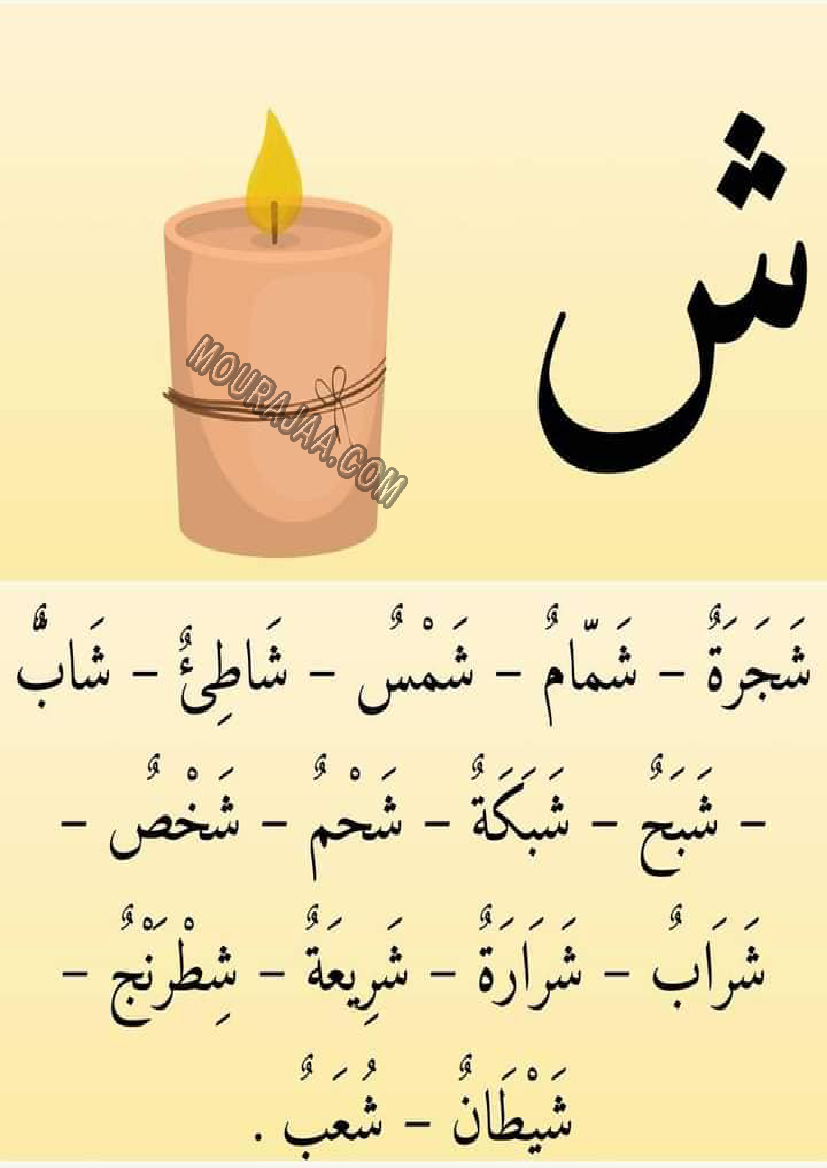 ش
MOURAJAA.COM
شَجَرَةٌ – شَمّامٌ – شَمْسٌ – شَاطِئٌ – شَابٌّ
– شَبَحٌ – شَبَكَةٌ – شَحْمٌ – شَخْصٌ –
شَرَابٌ – شَرَارَةٌ – شَرِيعَةٌ – شِطْرَنْجٌ –
شَيْطَانٌ – شُعَبٌ .